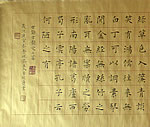 綠草色入簾青談
笑有鴻儒往來無
白丁可以調素琴
閱金經無絲竹之
亂耳無案牘之勞
形南陽諸葛廬西
蜀子雲亭孔子云
何陋之有